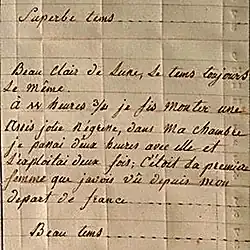 Superbe tems
Beau Clair de Lune, Le tems toujours
Le même.
à heures je fis monter une
jolie Négrene, dans ma chambre
je passai deux heures avec elle et
L'exploitai deux fois; C'étoit la premiere
femme que j'avois vû depuis mon
depart de france
Beau tems